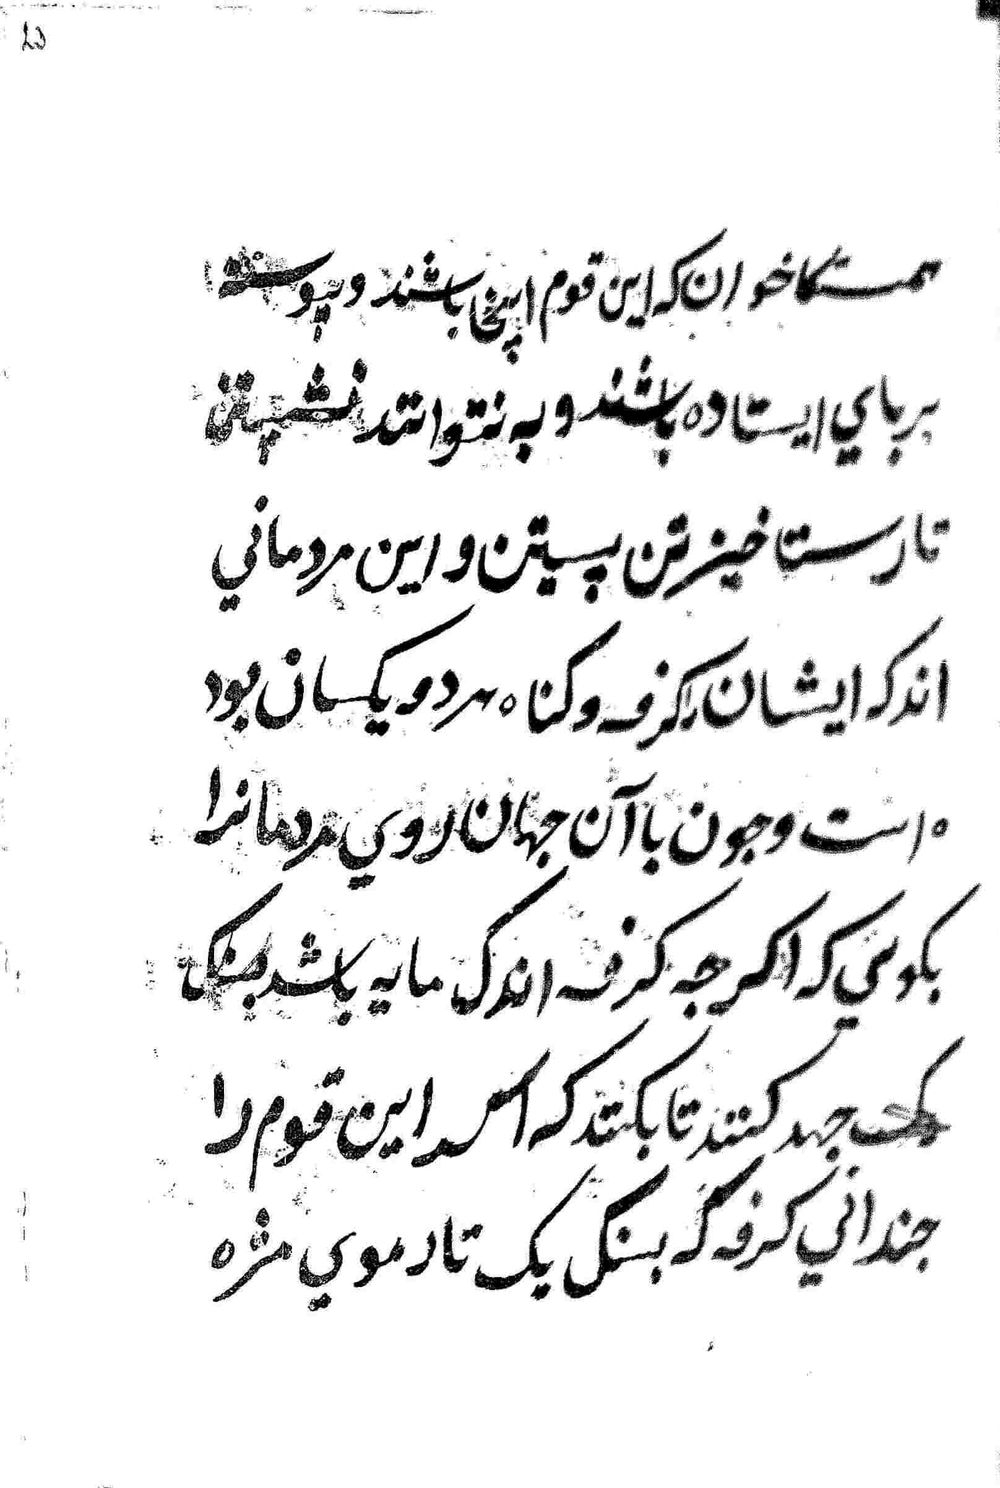 همستکاخوان که این قوم اینجا باشند و پیوسته
بر پاي ایستاده باشند و به نتوانند نشستن
تا رستاخیز تن پسین و این مردماني
اند که ایشان را کرفه و کناه هر دو یکسان بود
ه است و چون با آن جهان روي مردمانرا
بکوئي که اکر چه کرفه اندک مایه باشد بسنک
جهد کنند تا بکنند که این قوم را
چنداني کرفه کر بسنک یک تار موي مژه